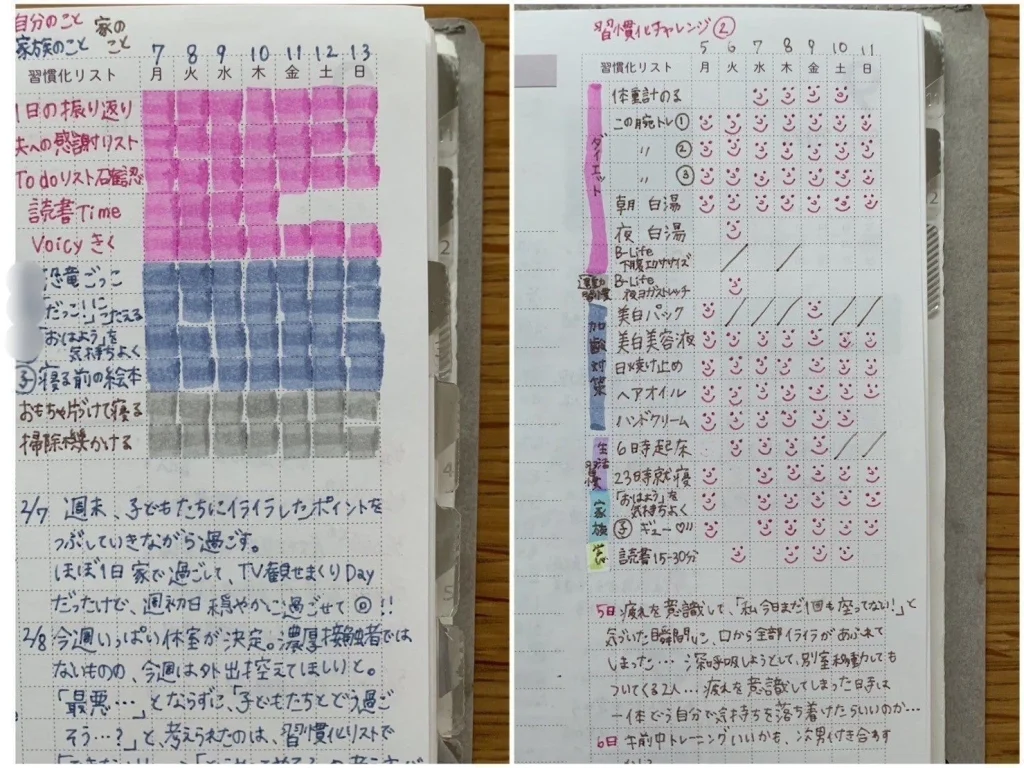 自分のこと 家の
家族のこと こと
7 8 9 10 11 12 13
習慣化リスト 月 火 水 木 金 土 日
1日の振り返り
夫への感謝リスト
To doリスト確認
読書Time
Voicyきく
恐竜ごっこ
だっこにこたえる
「おはよう」を
気持ちよく
子 寝る前の絵本
おもちゃ片づけて寝る
掃除機かける
2/7 週末、子どもたちにイライラしたポイントを
つぶしていきながら過ごす。
ほぼ1日家で過ごして、TV観せまくりDay
だったけど、週初日穏やかに過ごせて◎!!
2/8 今週いっぱい休室が決定。濃厚接触者では
ないものの、今週は外出控えてほしいと。
「最悪…」とならずに、「子どもたちとどう過ご
そう…?」と、考えられたのは、習慣化リストで
2
4
5
習慣化チャレンジ②
5 6 7 8 9 10 11
習慣化リスト 月 火 水 木 金 土 日
ダイエット
体重計のる
この腕トレ①
〃 ②
〃 ③
朝 白湯
夜 白湯
B-Life
下腹エクササイズ
運動習慣
B-Life
夜ヨガストレッチ
加齢対策
美白パック
美白美容液
日焼け止め
ヘアオイル
ハンドクリーム
生活習慣
6時起床
23時就寝
家族
「おはよう」を
気持ちよく
子 ギュー♡〃
学び
読書15-30分
5日 疲れを意識して、「私今日まだ1回も座ってない!」と
気づいた瞬間に、口から全部イライラがあふれて
しまった… 深呼吸しようとして、別室移動しても
ついてくる2人… 疲れを意識してしまった日時は
一体どう自分で気持ちを落ち着けたらいいのか…
6日 午前中トレーニングいいかも、次男付き合わす